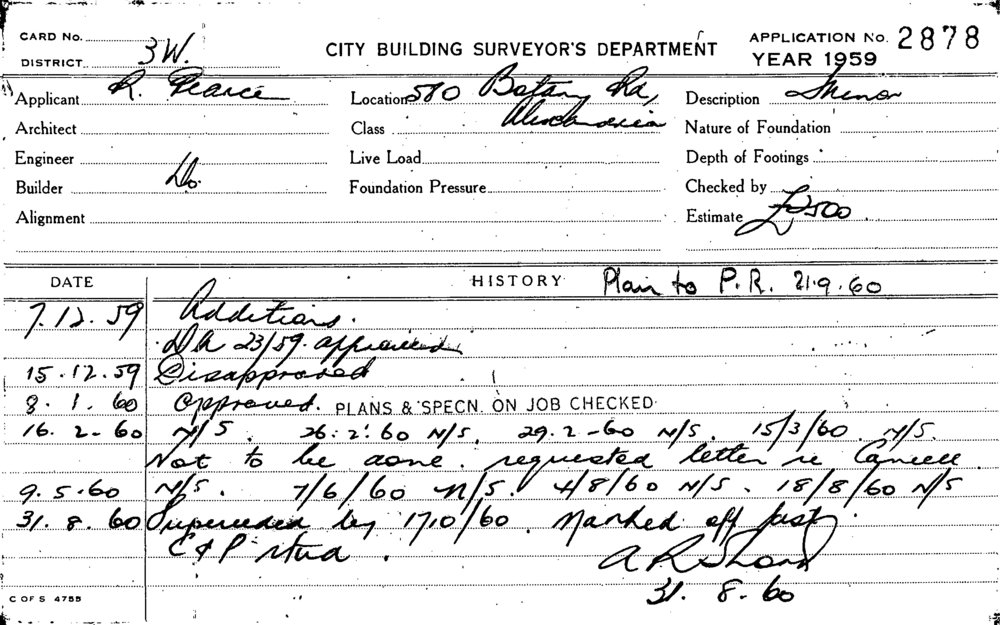 CARD No.
DISTRICT 3W.
CITY BUILDING SURVEYOR'S DEPARTMENT
APPLICATION No. 2878
YEAR 1959
Applicant R. Pearce
Location 580 Botany Rd,
Description Minor
Architect
Class Alexandria
Nature of Foundation
Engineer
Live Load
Depth of Footings
Builder Do.
Foundation Pressure
Checked by
Alignment
Estimate £2500
DATE
HISTORY Plan to P.R. 21.9.60
7.12.59 Additions.
DA 23/59 approved
15.12.59 Disapproved
8.1.60 Approved. PLANS & SPECN. ON JOB CHECKED
16.2-60 N/S. 26.2.60 N/S. 29.2-60 N/S. 15/3/60. N/S.
Not to be done. requested letter re Cancell.
9.5.60 N/S. 7/6/60 N/S. 4/8/60 N/S. 18/8/60 N/S
31.8.60 Superceded by 1710/60. Marked off
C & P
A R
31.8-60
C OF S 4755